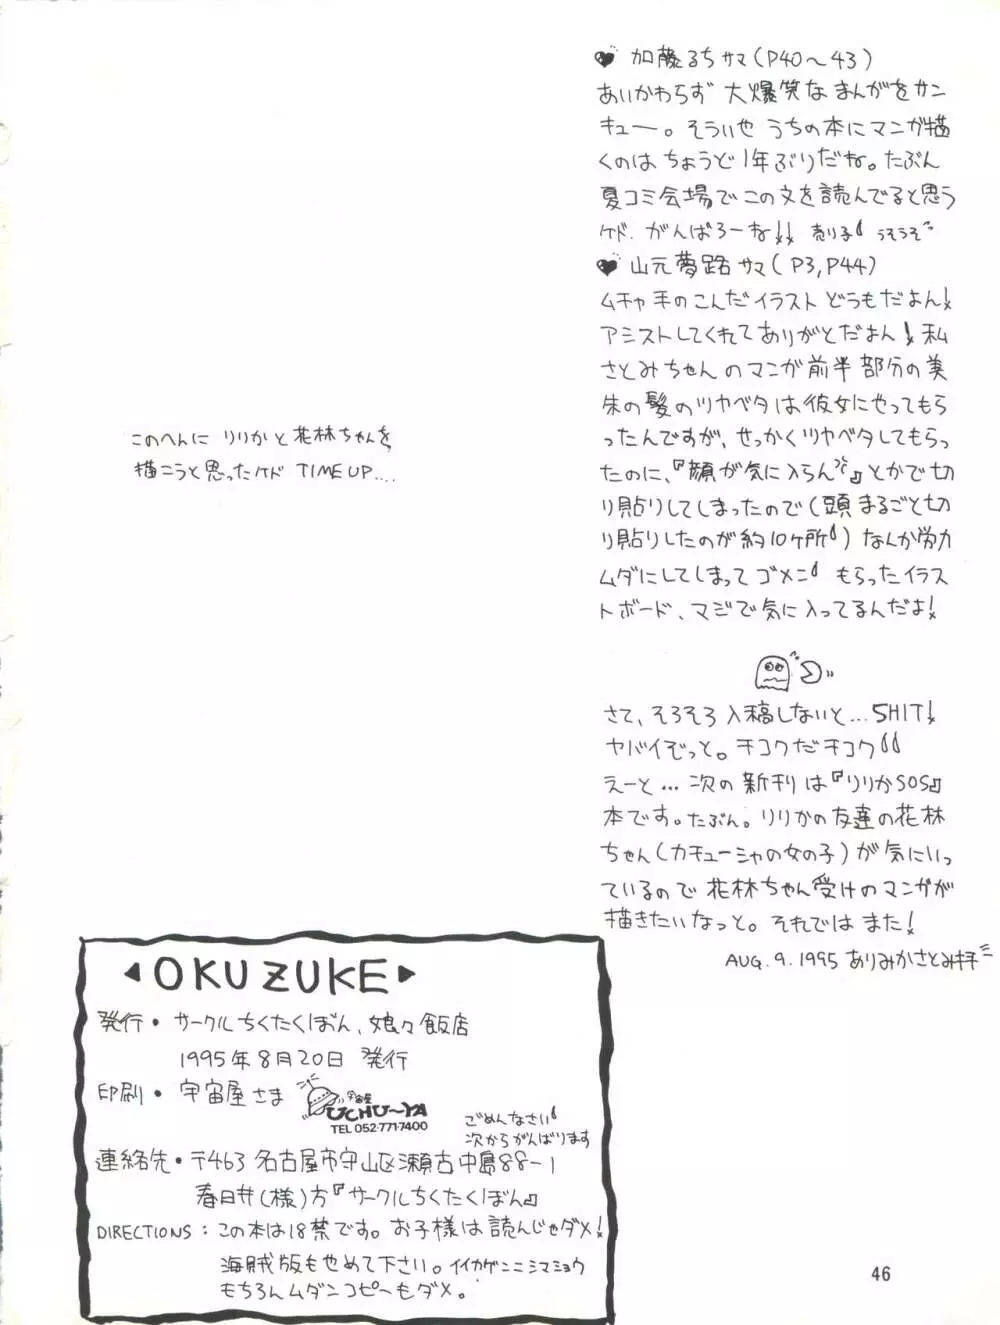 ♥ 加藤るちサマ(P40〜43)
あいかわらず 大爆笑なまんがをサン
キュー。そういや うちの本にマンガ描
くのは ちょうど1年ぶりだね。たぶん
夏コミ会場でこの文を読んでると思う
ケド、がんばろーな!! 売り子 うそうそ
♥ 山元夢路サマ(P3,P44)
ムチャ手のこんだイラスト どうもだよん!
アシストしてくれてありがとだよん! 私
さとみちゃんのマンガ前半部分の美
朱の髪のツヤベタは彼女にやってもら
ったんですが、せっかくツヤベタしてもらっ
たのに、『顔が気に入らん』とかで切
り貼りしてしまったので(頭まるごと切
り貼りしたのが約10ヶ所)なんか労力
ムダにしてしまってゴメン もらったイラス
トボード、マジで気に入ってるんだよ!
このへんに りりかと花林ちゃんを
描こうと思ったケド TIME UP....
さて、そろそろ入稿しないと…SHIT!
ヤバイぞっと。チコクだチコク
えーと…次の新刊は『りりかSOS』
本です。たぶん。りりかの友達の花林
ちゃん(カチューシャの女の子)が気にいっ
ているので 花林ちゃん受けのマンガが
描きたいなっと。それではまた!
AUG.9.1995 ありみかさとみ拝
◀OKUZUKE▶
発行・サークルちくたくぼん、娘々飯店
1995年8月20日 発行
印刷・宇宙屋さま
宇宙屋
UCHU〜YA
TEL 052-771-7400
ごめんなさい
次からがんばります
連絡先・〒463 名古屋市守山区瀬古中島88-1
春日井(様)方『サークルちくたくぼん』
DIRECTIONS:この本は18禁です。お子様は読んじゃダメ!
海賊版もやめて下さい。イイカゲンニシマショウ
もちろんムダンコピーもダメ。
46